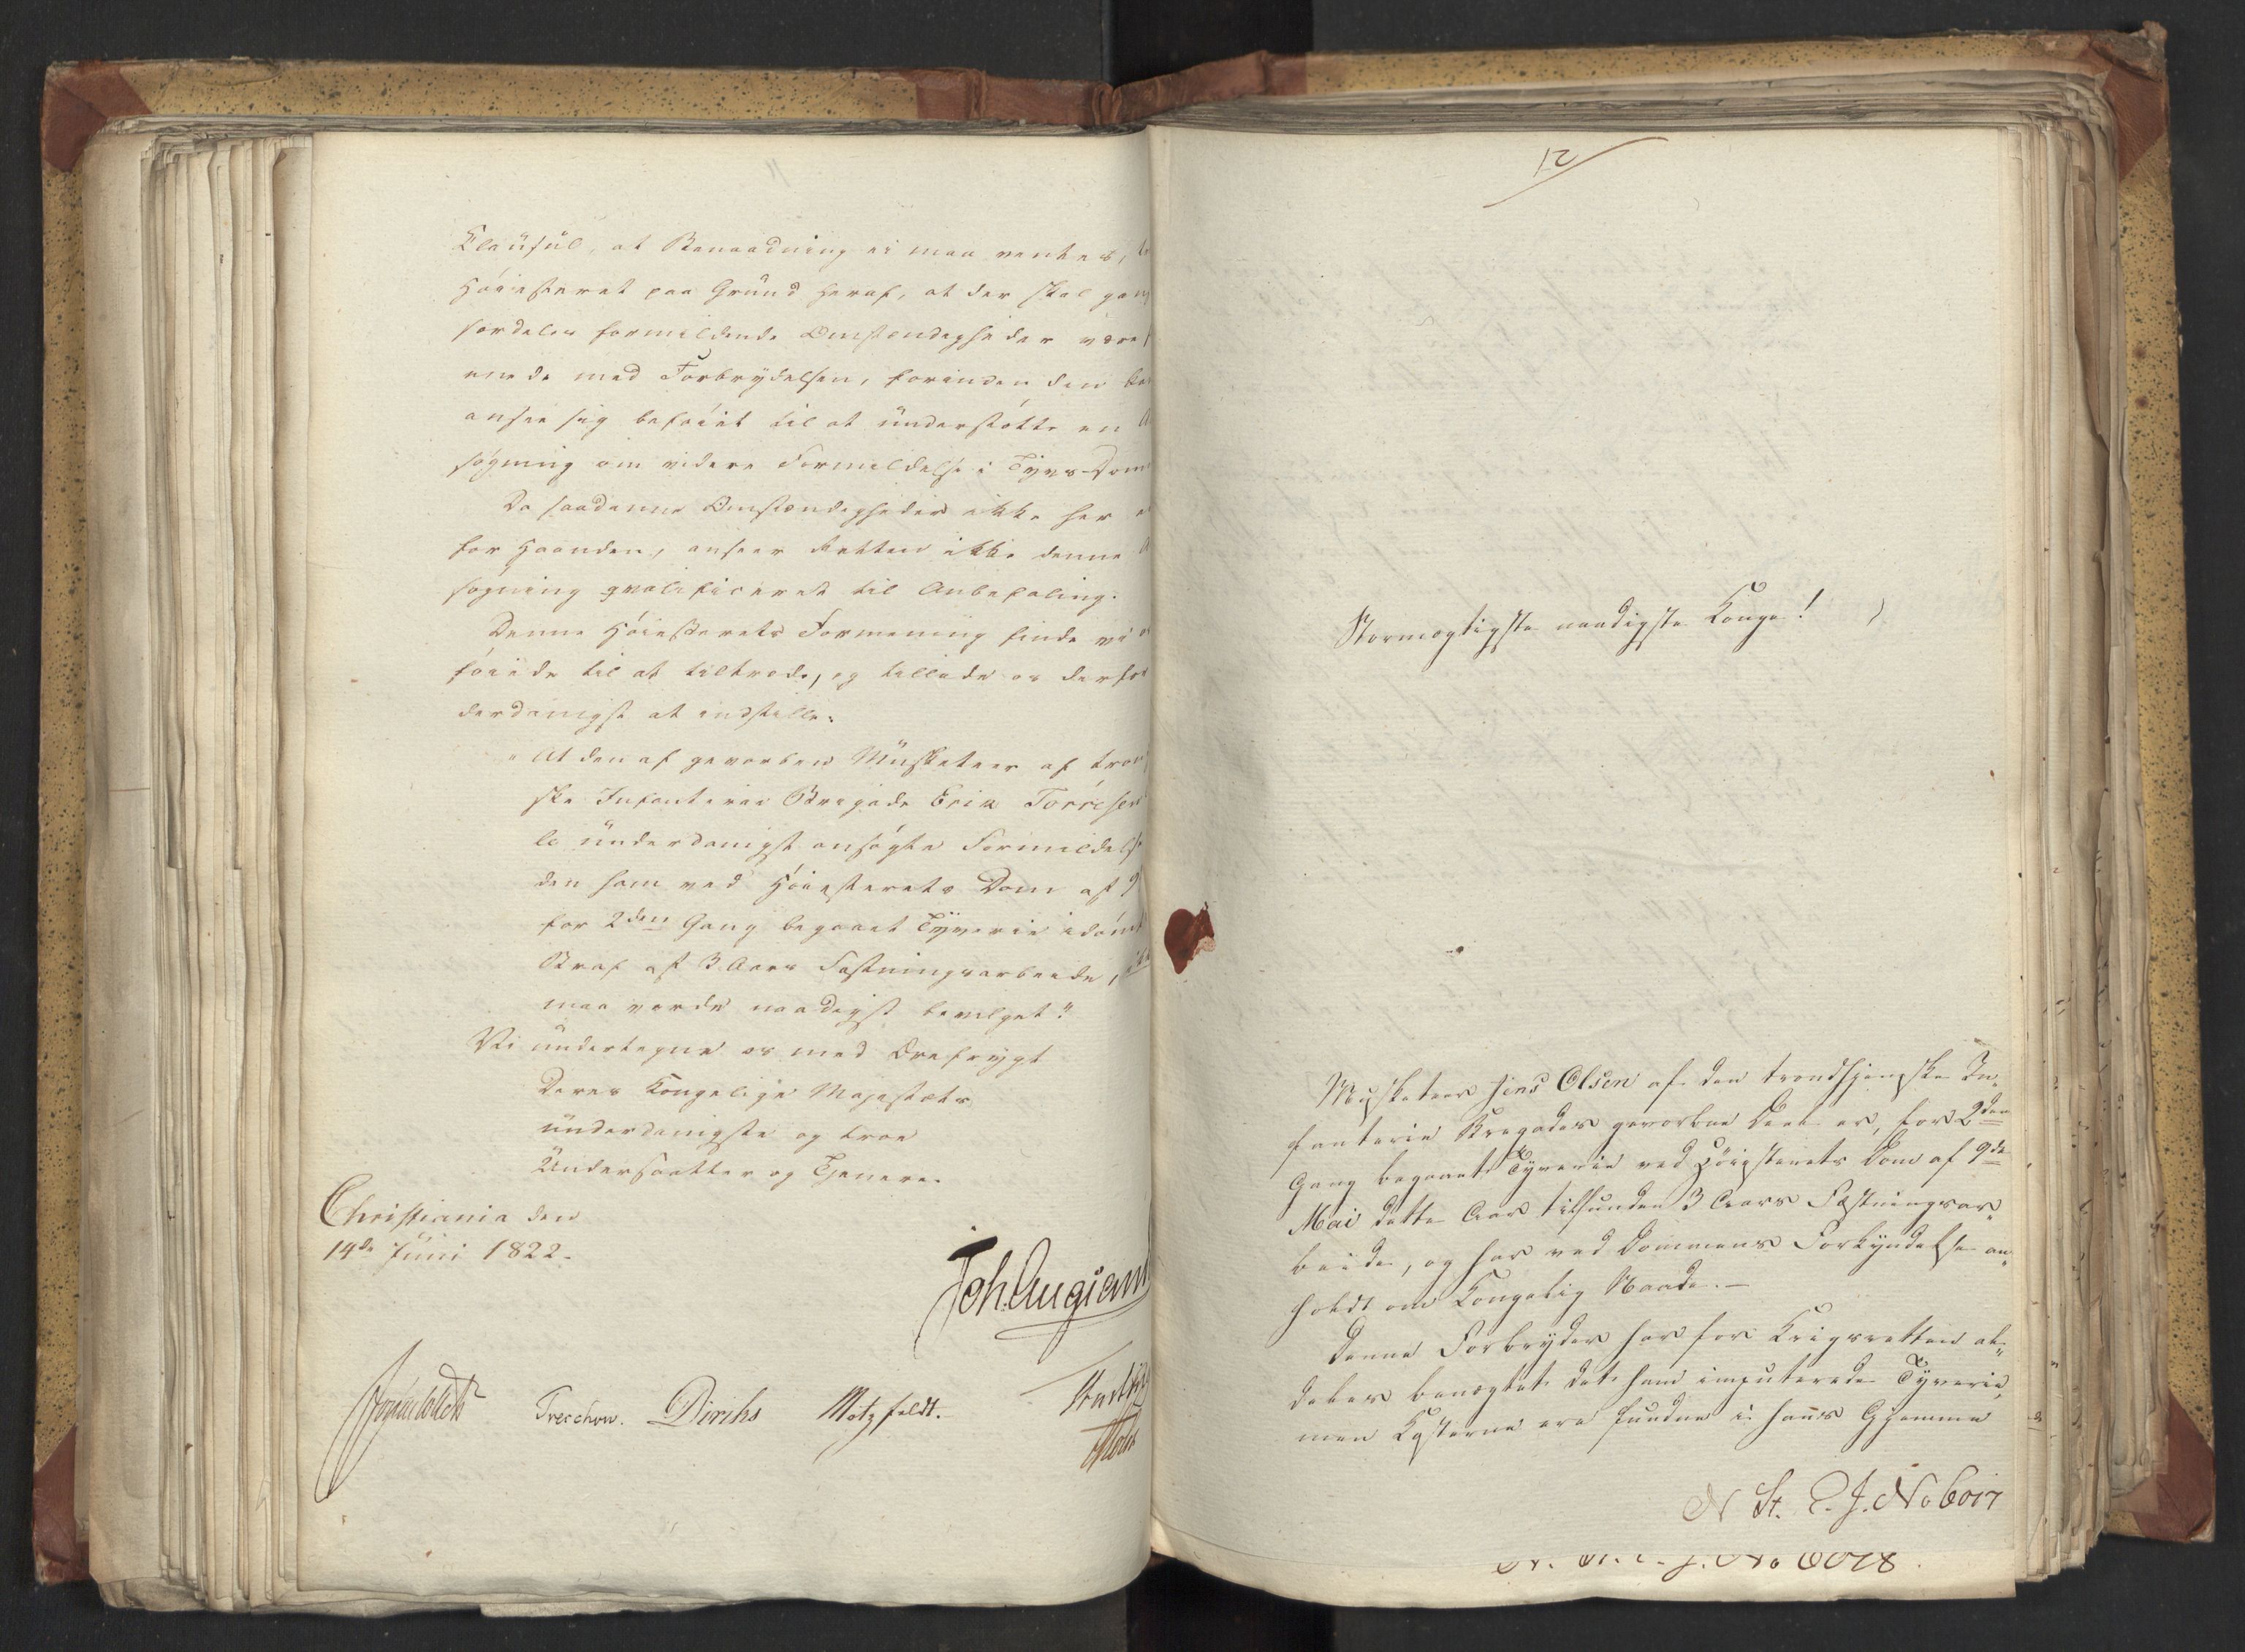 Clausul, at Benaadning ei maa ventes,
Høiesteret paa Grund heraf, at der skal gan
særdeles formildende Omstændigheder være
enede med Forbrydelsen, forinden den
ansee sig beføiet til at understøtte en
søgning om videre Formildelse i Tyvs-Dom
Da saadanne Omstændigheder ikke her
for Haanden, anseer Retten ikke denne
søgning qvalificeret til Anbefaling.
Denne Høiesterets Formening finde vi
føiede til at tiltræde, og tillade os derfor
derdanigst at indstille:
"At den af gevorben Musketeer af tron
ske Infanterie Brigade Erik Torresen
le underdanigst ansøgte Formildelse
den ham ved Høiesterets Dom af 9
for 2den Gang begaaet Tyverie idømt
Straf af 3 Aars Fæstningsarbeide,
maa vorde naadigst bevilget"
Vi undertegne os med Ærefrygt
Deres Kongelige Majestæts
underdanigste og troe
Undersaatter og Tjenere.
Christiania den
14de Juni 1822.
Joh. Aug
Treschow. Diriks Motzfeldt.
12
Stormægtigste naadigste Konge!
Musketeer Jens Olsen af den trondhjemske In-
fanterie Brigades gevorbne Deel er, for 2den
Gang begaaet Tyverie ved Høiesterets Dom af 9de
Mai dette Aar tilfunden 3 Aars Fæstningsar-
beide, og har ved Dommens Forkyndelse an-
holdt om Kongelig Naade.-
Denne Forbryder har for Krigsretten al-
deles benægtet det ham imputerede Tyverie,
men Kosterne ere fundne i hans Gjemme
N St. E. J. No 6017
N. St. E. J. No 6018.